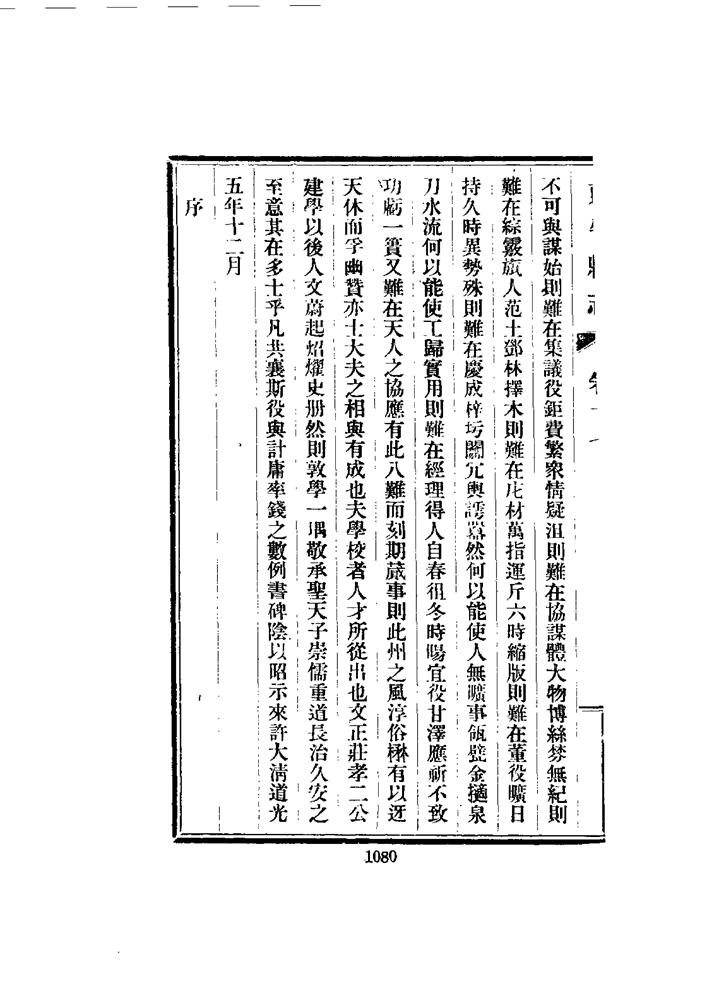 縣志
不可與謀始則難在集議役鉅費繁衆情疑沮則難在協謀體大物博絲棼無紀則
難在綜覈旊人范土鄧林擇木則難在庀材萬指運斤六時縮版則難在董役曠日
持久時異勢殊則難在慶成梓圬闒宂輿謣囂然何以能使人無曠事瓴甓金擿泉
刀水流何以能使工歸實用則難在經理得人自春徂冬時暘宜役甘澤應祈不致
功虧一簣又難在天人之協應有此八難而刻期蕆事則此州之風淳俗楙有以迓
天休而孚幽贊亦士大夫之相與有成也夫學校者人才所從出也文正莊孝二公
建學以後人文蔚起炤燿史册然則敦學一隅敬承聖天子崇儒重道長治久安之
至意其在多士乎凡共襄斯役與計庸率錢之數例書碑陰以昭示來許大淸道光
五年十二月
序
1080